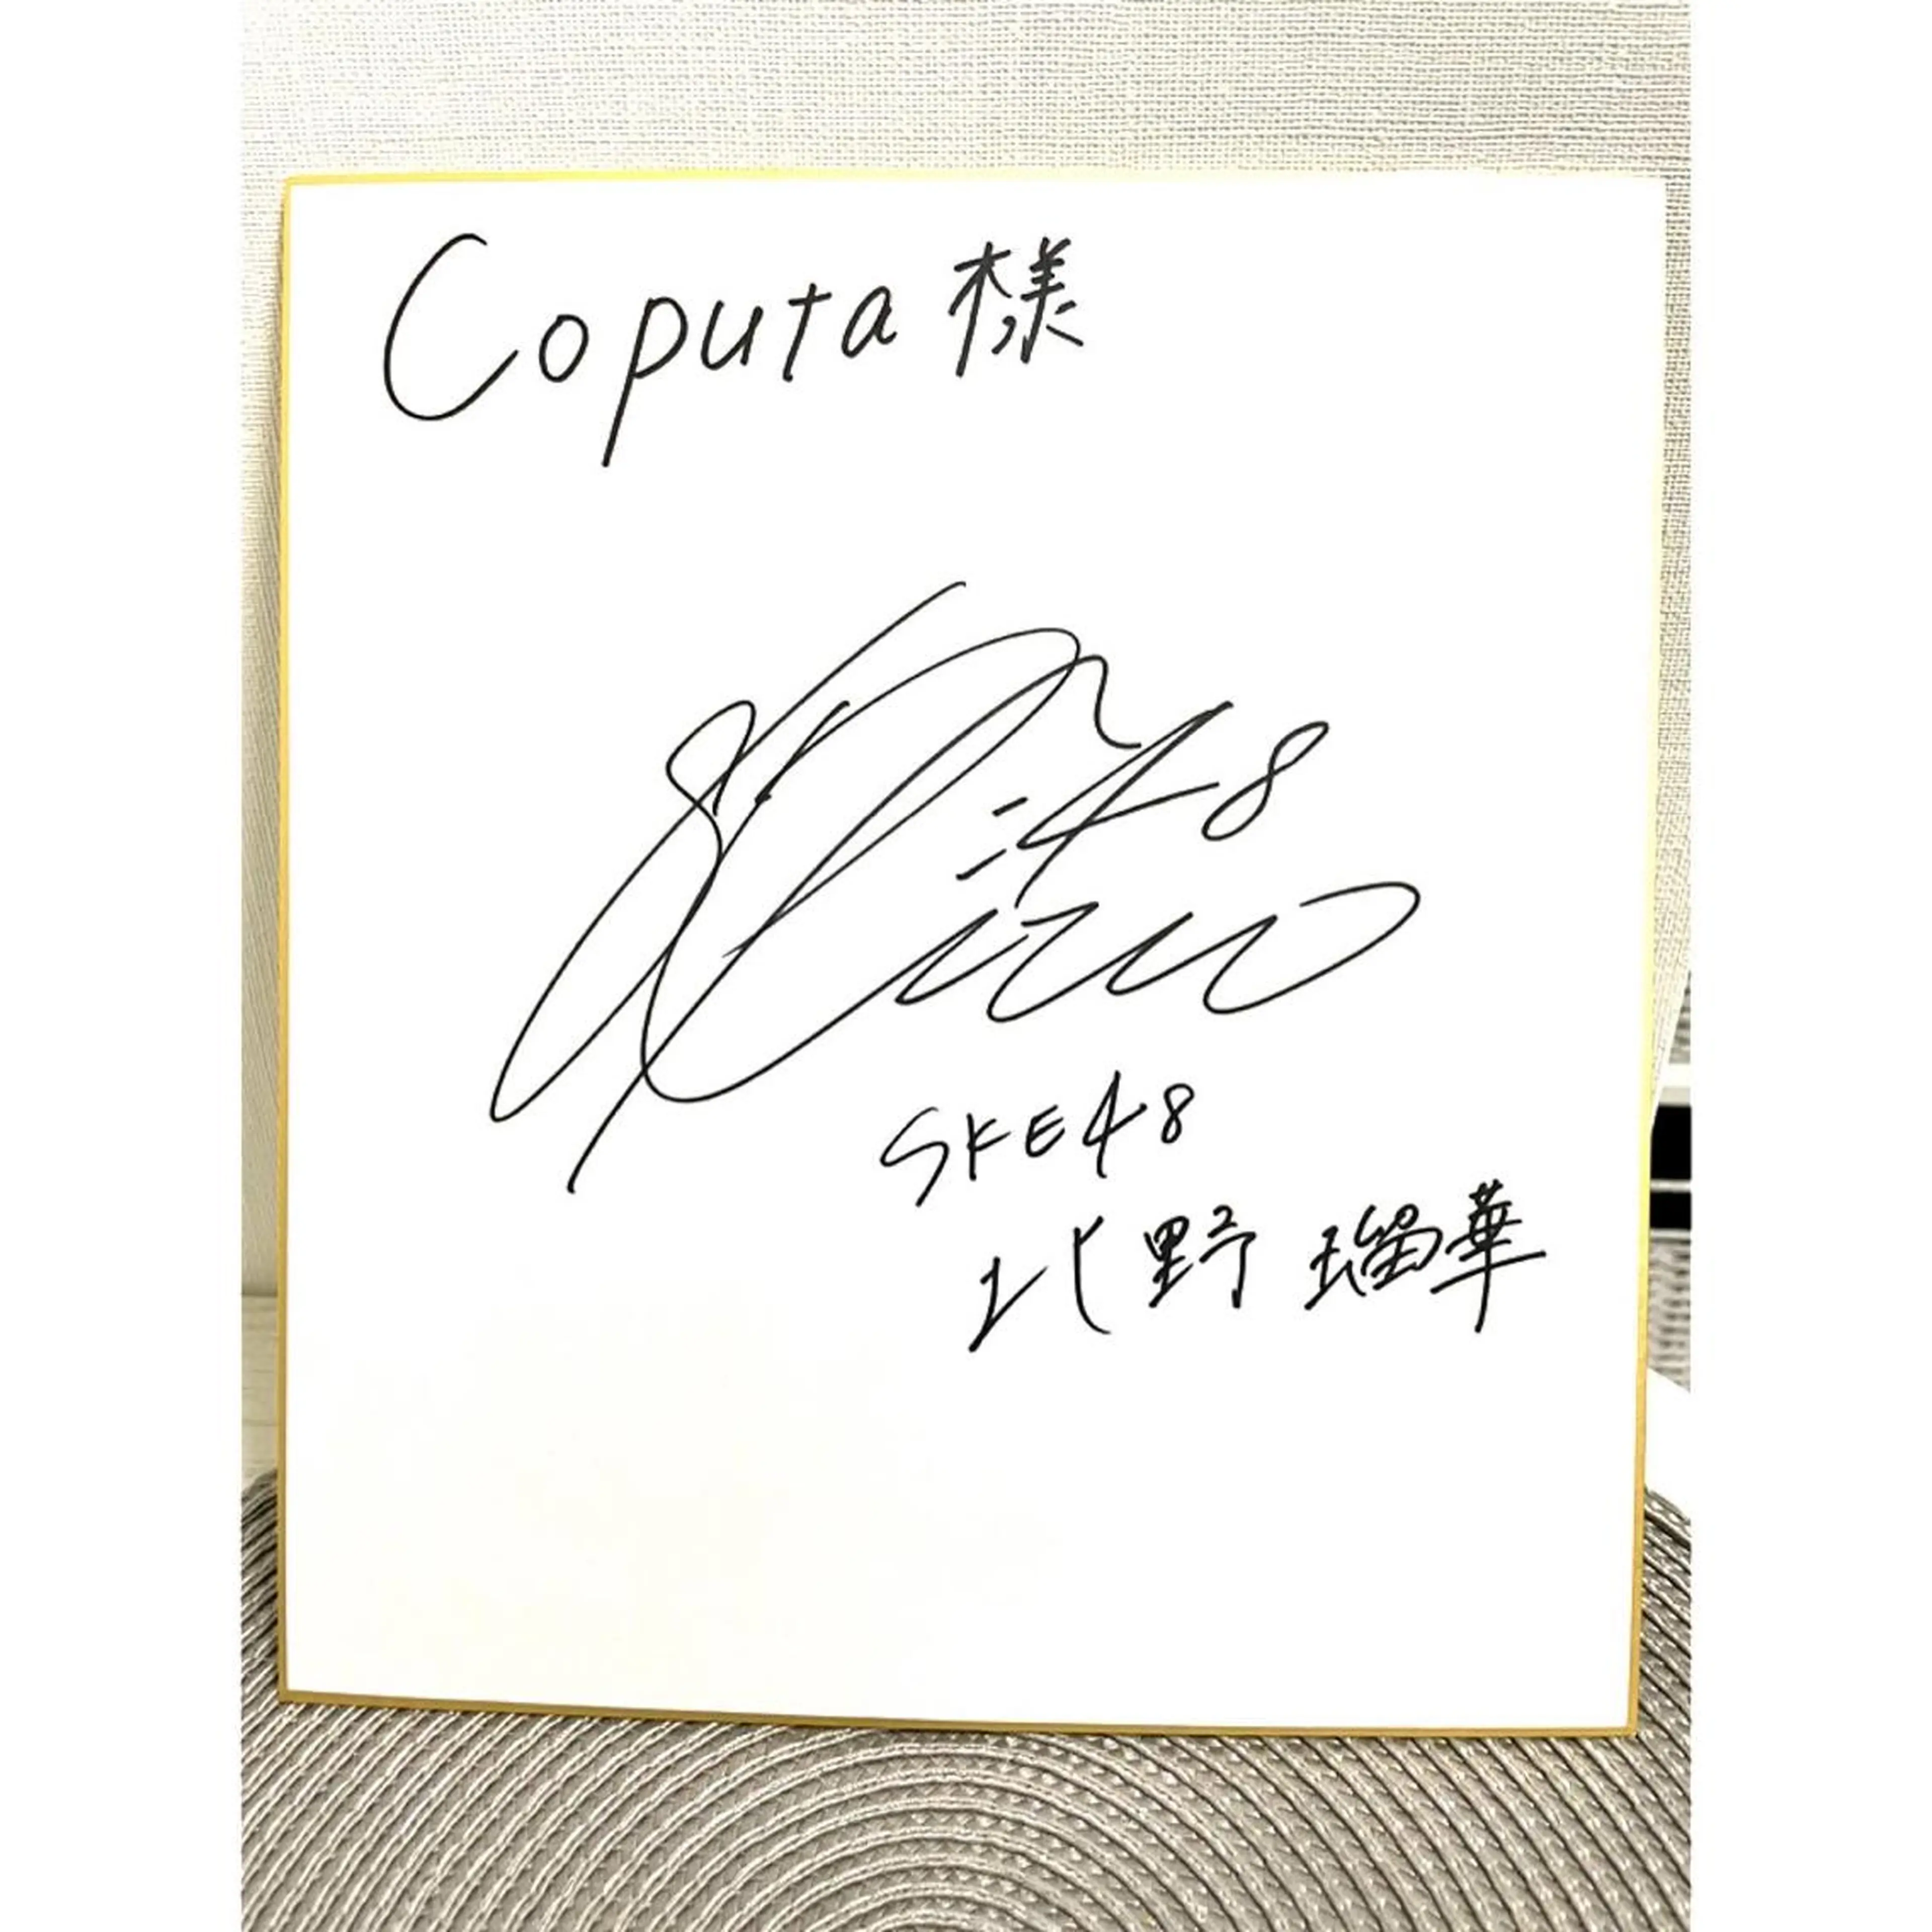 Coputa 様
SKE48
北野 瑠華